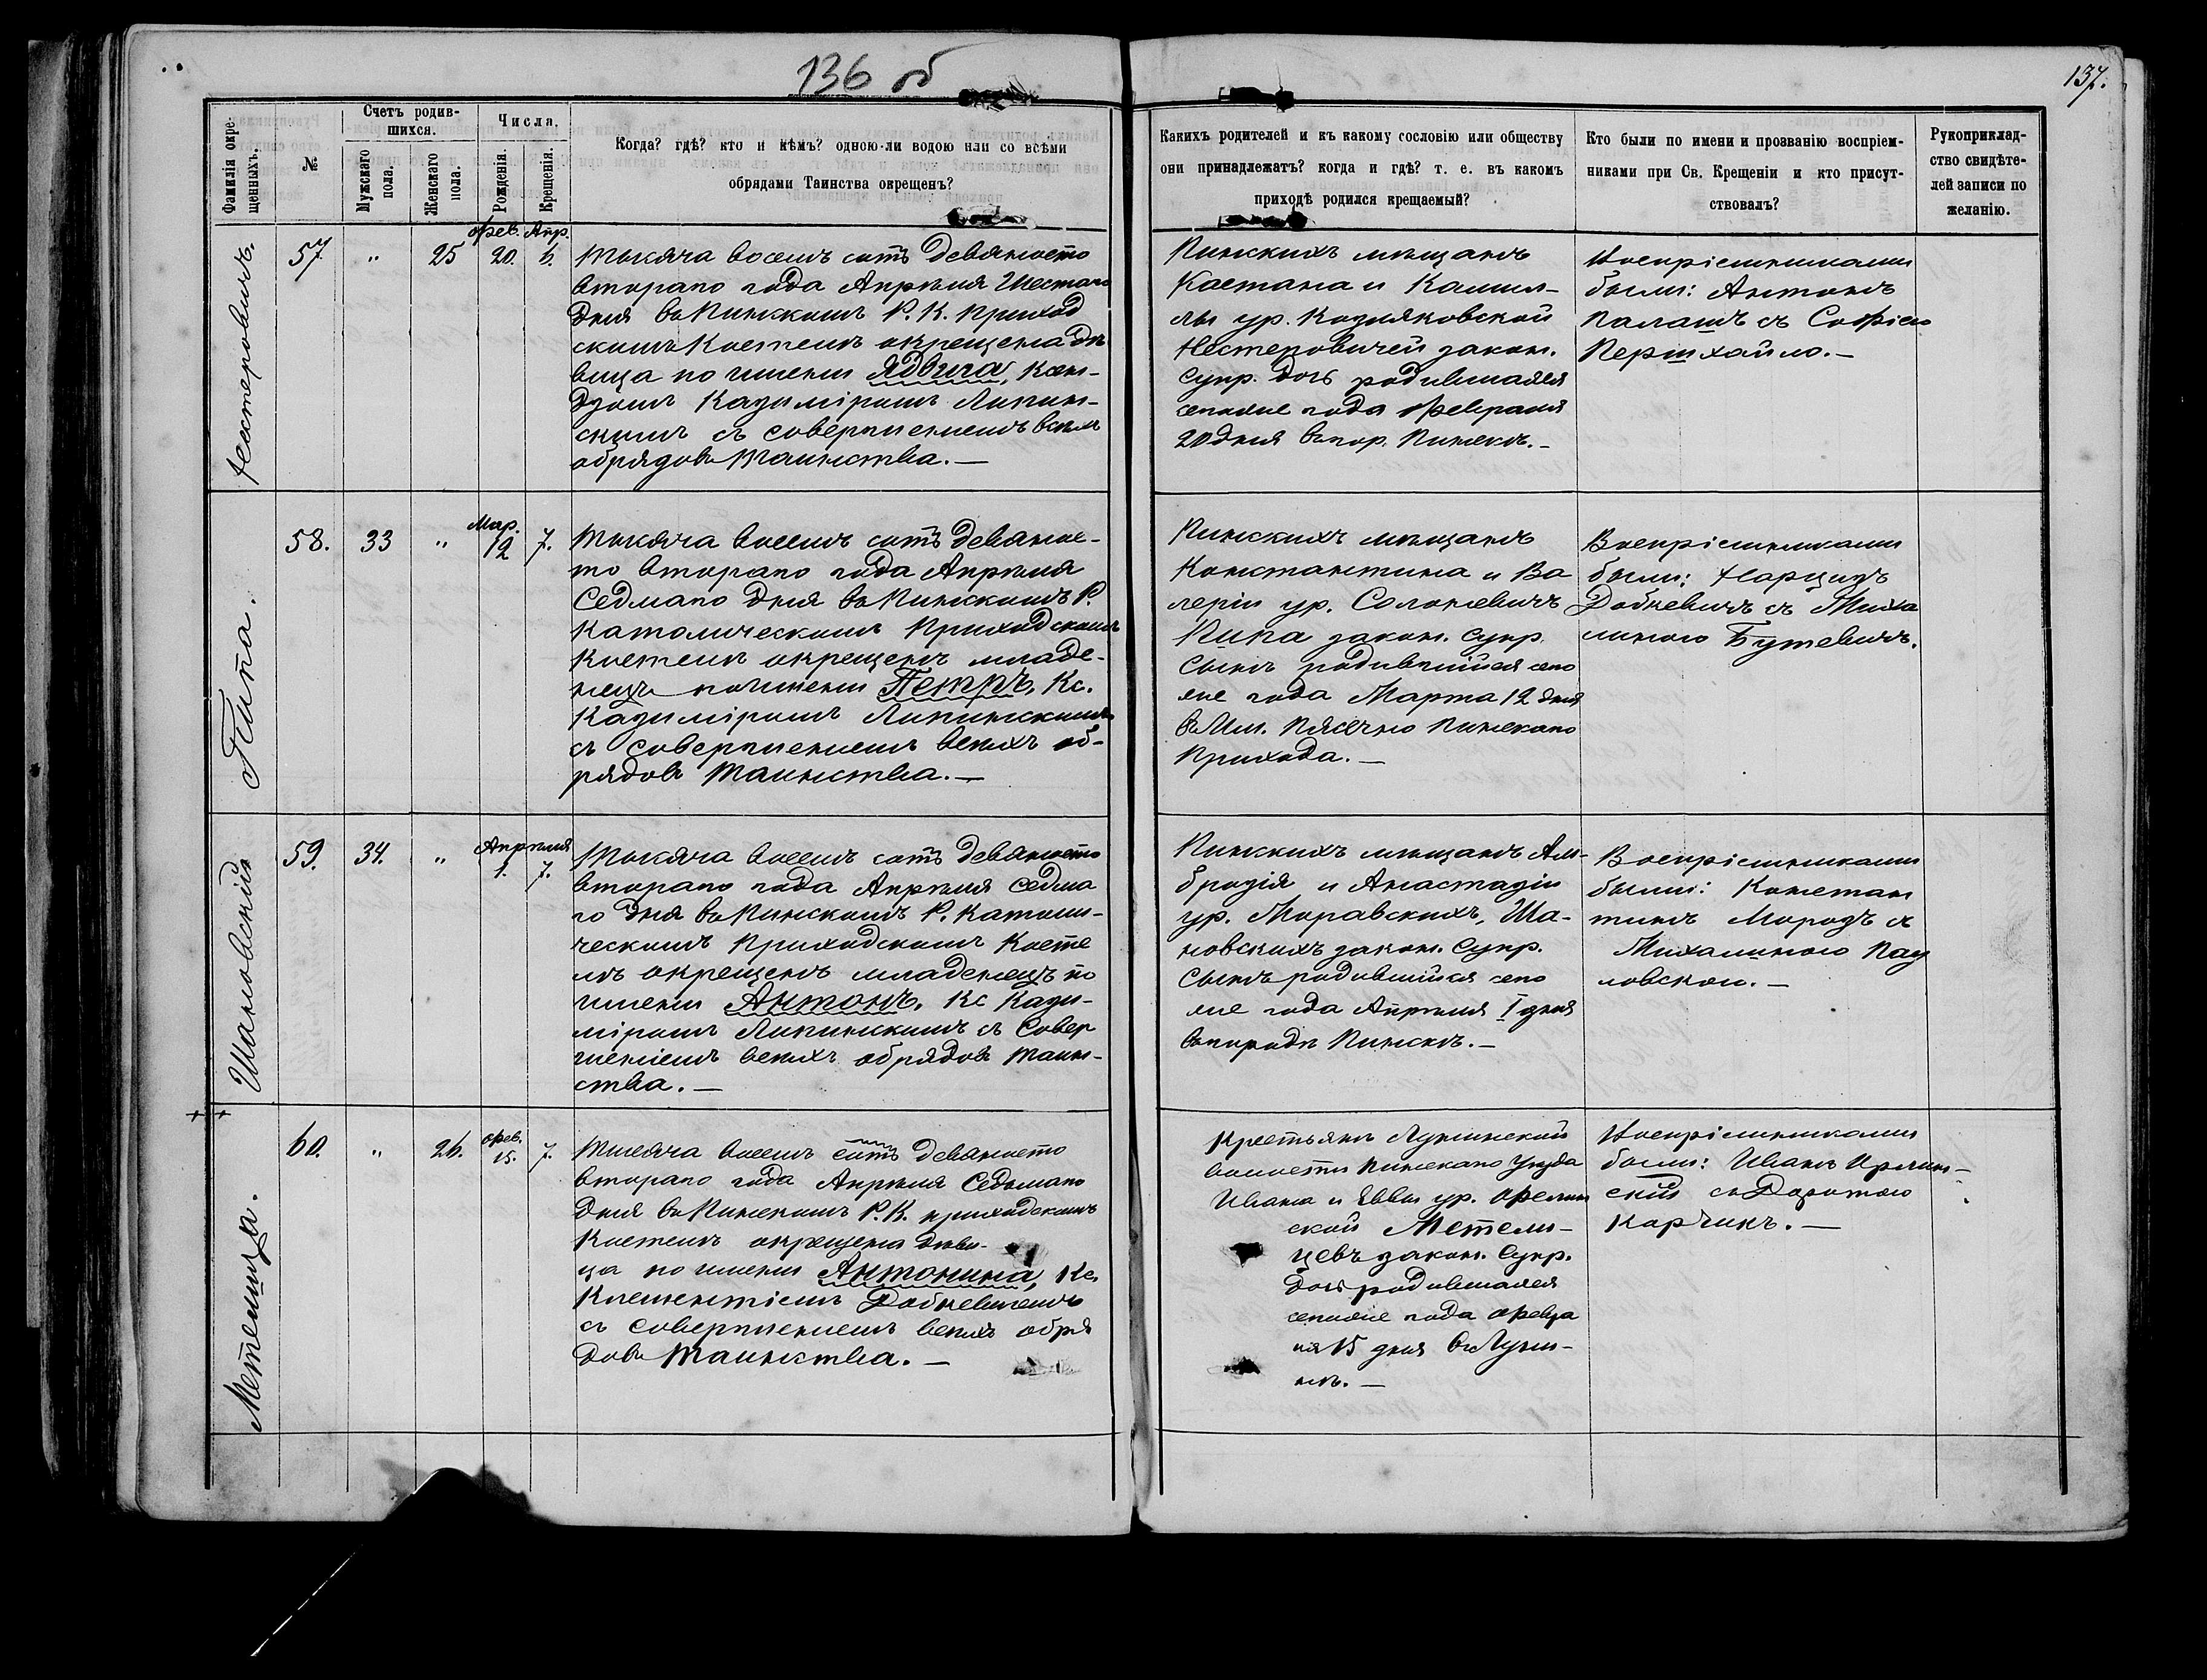 136 об
137.
Фамилія окре-
щенныхъ.
№
Счетъ родив-
шихся.
Мужскаго
пола.
Женскаго
пола.
Числа.
Рожденія.
Крещенія.
Когда? гдѣ? кто и кѣмъ? одною-ли водою или со всѣми
обрядами Таинства окрещенъ?
Какихъ родителей и къ какому сословію или обществу
они принадлежатъ? когда и гдѣ? т. е. въ какомъ
приходѣ родился крещаемый?
Кто были по имени и прозванію воспріем-
никами при Св. Крещеніи и кто присут-
ствовалъ?
Рукоприклад-
ство свидѣте-
лей записи по
желанію.
Нестеровичъ.
57
"
25
Фев.
20.
Апр.
6.
Тысяча восемь сотъ девяносто
втораго года Апрѣля Шестаго
дня въ Пинскомъ Р. К. Приход
скомъ Костелѣ окрещена дѣ
вица по имени Ядвига, Ксен-
дзомъ Казиміромъ Липин-
скимъ съ совершениемъ всѣхъ
обрядовъ Таинства. —
Пинскихъ мѣщанъ
Каетана и Камил-
лы ур. Козляковской
Нестеровичей закон.
Супр. дочь родившаяся
сегоже года Февраля
20 дня въ гор. Пинскѣ. —
Воспріемниками
были: Антонъ
Палашъ съ Софіею
Першхайло. —
Пипа.
58.
33
"
Мар.
12
7.
Тысяча восемь сотъ девянос-
то втораго года Апрѣля
Седмаго дня въ Пинскомъ Р.
Католическомъ Приходскомъ
Костелѣ окрещенъ младе-
нецъ по имени Петръ, Кс.
Казиміромъ Липинскимъ
съ совершениемъ всѣхъ об-
рядовъ Таинства. —
Пинскихъ мѣщанъ
Константина и Ва
леріи ур. Солоневичъ
Пипа закон. Супр.
Сынъ родившийся сего
же года Марта 12 дня
въ Им. Пясечно Пинскаго
Прихода. —
Воспріемниками
были: Нарцизъ
Добкевичъ съ Миха
линою Бутевичъ.
Шановский
59.
34.
"
Апрѣля
1.
7.
Тысяча восемь сотъ девяносто
втораго года Апрѣля Седма
го дня въ Пинскомъ Р. Католи-
ческомъ Приходскомъ Косте
лѣ окрещенъ младенецъ по
имени Антонъ, Кс Кази-
міромъ Липинскимъ съ Совер
шеніемъ всѣхъ обрядовъ Таин-
ства. —
Пинскихъ мѣщанъ Ам-
брозія и Анастазіи
ур. Моравскихъ, Ша-
новскихъ закон. Супр.
Сынъ родившийся сего
же года Апрѣля 1 дня
въ городѣ Пинскѣ. —
Воспріемниками
были: Констан
тинъ Морозъ съ
Михалиною Пау
ловскою. —
Метелица.
60.
"
26.
Фев.
15.
7.
Тисяча восемь сотъ девяносто
втораго года Апрѣля Седьмаго
дня въ Пинскомъ Р. К. приходскомъ
Костелѣ окрещена дѣви-
ца по имени Антонина, Кс.
Клементіемъ Добкевичемъ
съ совершениемъ всѣхъ обря
довъ Таинства. —
Крестьянъ Лунинской
волости Пинскаго Уѣзда
Ивана и Еввы ур. Фелин
ской Метели-
цевъ закон. Супр.
дочь родившаяся
сегоже года Февра
ля 15 дня въ Луни-
нѣ. —
Воспріемниками
были: Иванъ
ский съ Доротою
Корчикъ. —